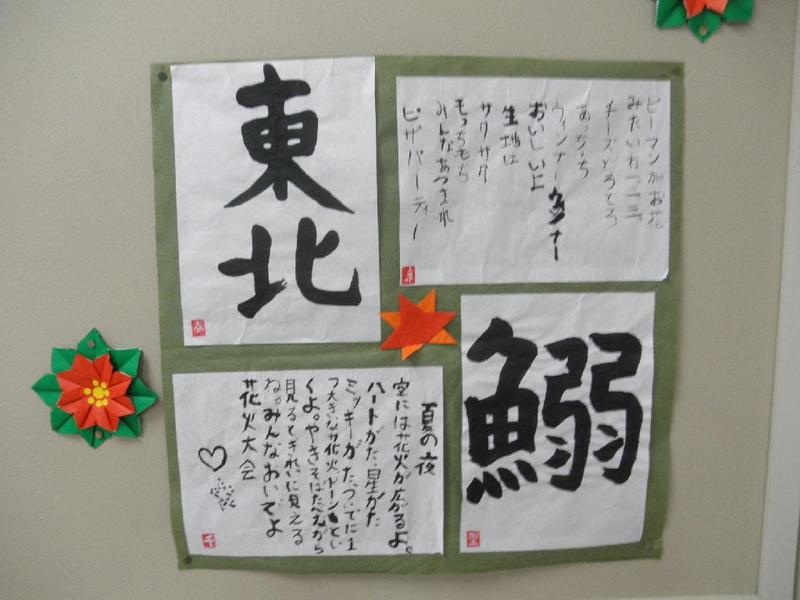 東北
ピーマンがお花
みたい一二三
チーズとろとろ
あっちっち
ウィンナー
おいしいよ
生地は
サクサク
もっちもち
みんなあつまれ
ピザパーティー
夏の夜
空には花火が広がるよ。
ハートがた、星がた
ミッキーがた、ついでに1
つ大きな花火ドーンとい
くよ。やきそばたべながら
見るときれいに見える
ね。みんなおいでよ
花火大会
鰯